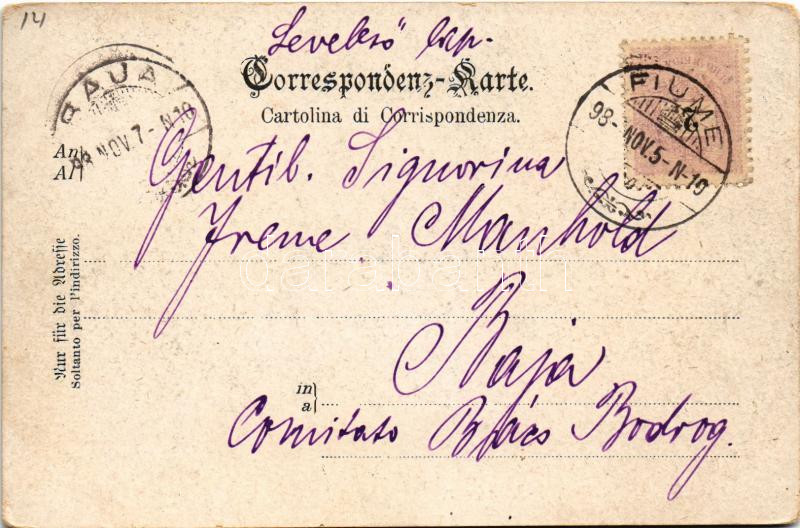 14
Levelező lap.
Correspondenz-Karte.
Cartolina di Corrispondenza.
BAJA
98 NOV. 7 - N 10
FIUME
98 - NOV. 5 - N - 10
An
Al
Gentil. Signorina
Irene Manhold
darabanth
Baja
in
a
Comitato Bács Bodrog.
Nur für die Adresse
Soltanto per l'indirizzo.